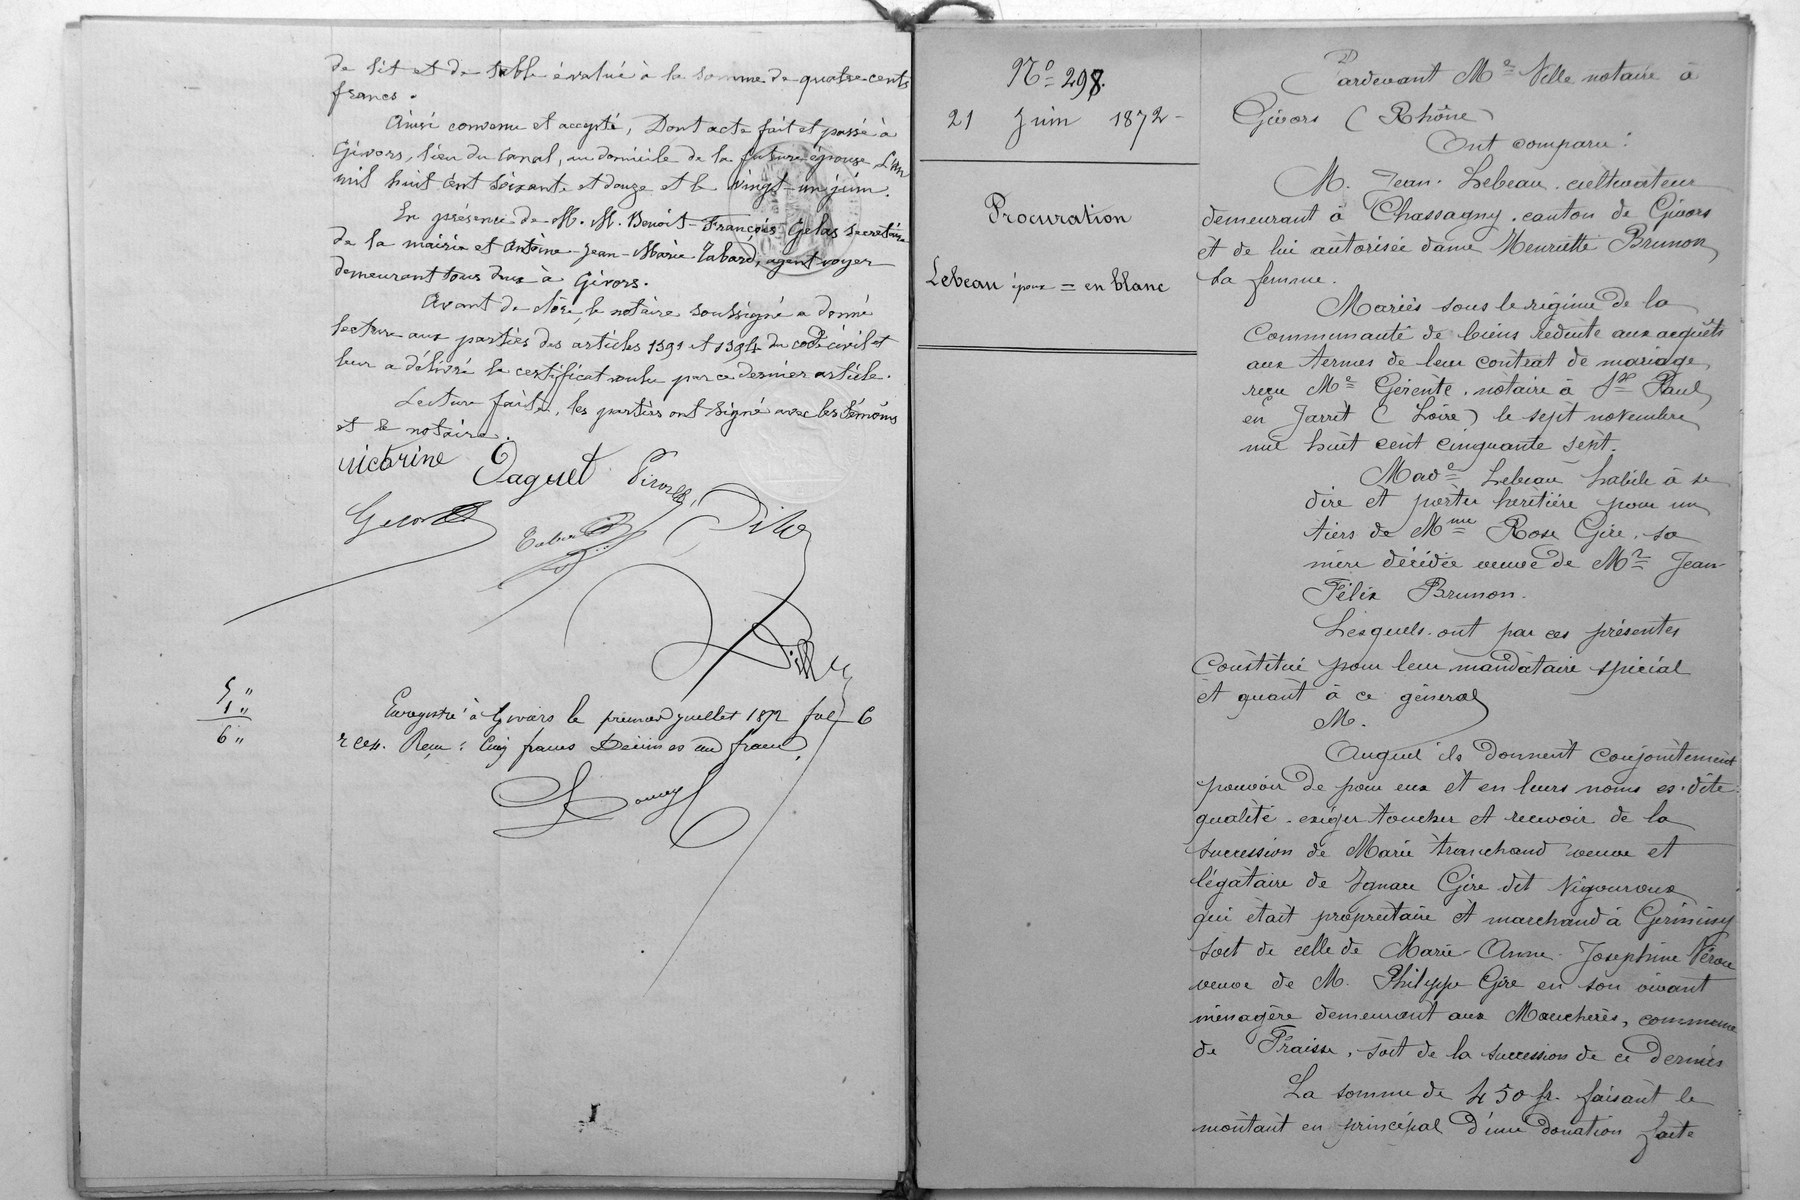 de lit et de table évalué à la somme de quatre-cents
francs.
Ainsi convenu et accepté, Dont acte fait et passé à
Givors, lieu du Canal, au domicile de la future épouse L'an
mil huit cent soixante et douze et le vingt-un juin.
En présence de M. M. Benoit-François Gelas secrétaire
de la mairie et Antoine-Jean-Marie Tabard, agent voyer
demeurant tous deux à Givors.
Avant de clore, le notaire soussigné a donné
lecture aux parties des articles 1391 et 1394 du code civil et
leur a délivré le certificat voulu par ce dernier article.
Lecture faite, les parties ont signé avec les témoins
et le notaire.
victorine Paquet
5 "
1 "
6 "
Enregistré à Givors le premier juillet 1872 fol 6
r c 4. Reçu : Cinq francs Décimes un franc.
No 298.
21 Juin 1872-
Procuration
Lebeau époux = en blanc
Pardevant Me Ville notaire à
Givors (Rhône)
Ont comparu :
M. Jean Lebeau, cultivateur
demeurant à Chassagny, canton de Givors
et de lui autorisée dame Henriette Brunon
sa femme.
Mariés sous le régime de la
Communauté de biens réduite aux acquêts
aux termes de leur contrat de mariage
reçu Me Gérente, notaire à St Paul
en Jarrêt (Loire) le sept novembre
mil huit cent cinquante sept.
Made Lebeau habile à se
dire et porter héritière pour un
tiers de Mme Rose Gire, sa
mère décédée veuve de Mr Jean
Félix Brunon.
Lesquels ont par ces présentes
Constitué pour leur mandataire spécial
et quant à ce général
M.
Auquel ils donnent conjointement
pouvoir de pour eux et en leurs noms es-dite
qualité, exiger toucher et recevoir de la
succession de Marie tranchand veuve et
légataire de Ignace Gire dit Vigouroux
qui était propriétaire et marchand à
soit de celle de Marie-Anne-Joséphine
veuve de M. Philippe Gire en son vivant
ménagère demeurant aux Moucherès, commune
de Fraisse, soit de la succession de ce dernier
La somme de 450 fr. faisant le
montant en principal d'une donation faite